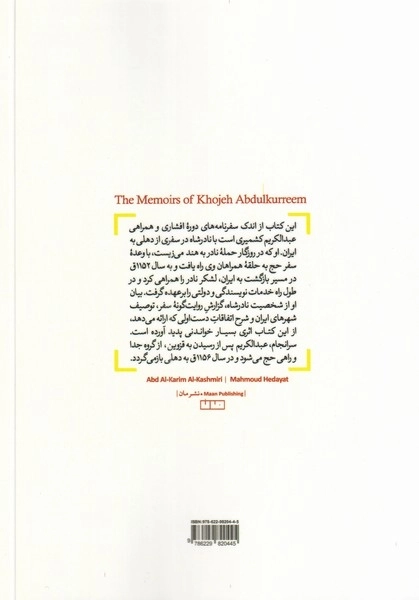 The Memoirs of Khojeh Abdulkurreem
این کتاب از اندک سفرنامه‌های دورهٔ افشاری و همراهی
عبدالکریم کشمیری است با نادرشاه در سفری از دهلی به
ایران. او که در روزگار حملهٔ نادر به هند می‌زیست، با وعدهٔ
سفر حج به حلقهٔ همراهان وی راه یافت و به سال ۱۱۵۲ق
در مسیر بازگشت به ایران، لشکر نادر را همراهی کرد و در
طول راه خدمات نویسندگی و دولتی را برعهده گرفت. بیان
او از شخصیت نادرشاه، گزارش روایت‌گونهٔ سفر، توصیف
شهرهای ایران و شرح اتفاقات دست‌اولی که ارائه می‌دهد،
از این کتاب اثری بسیار خواندنی پدید آورده است.
سرانجام، عبدالکریم پس از رسیدن به قزوین، از گروه جدا
و راهی حج می‌شود و در سال ۱۱۵۶ق به دهلی بازمی‌گردد.
Abd Al-Karim Al-Kashmiri | Mahmoud Hedayat
| نشر مان • Maan Publishing |
9 786229 820445